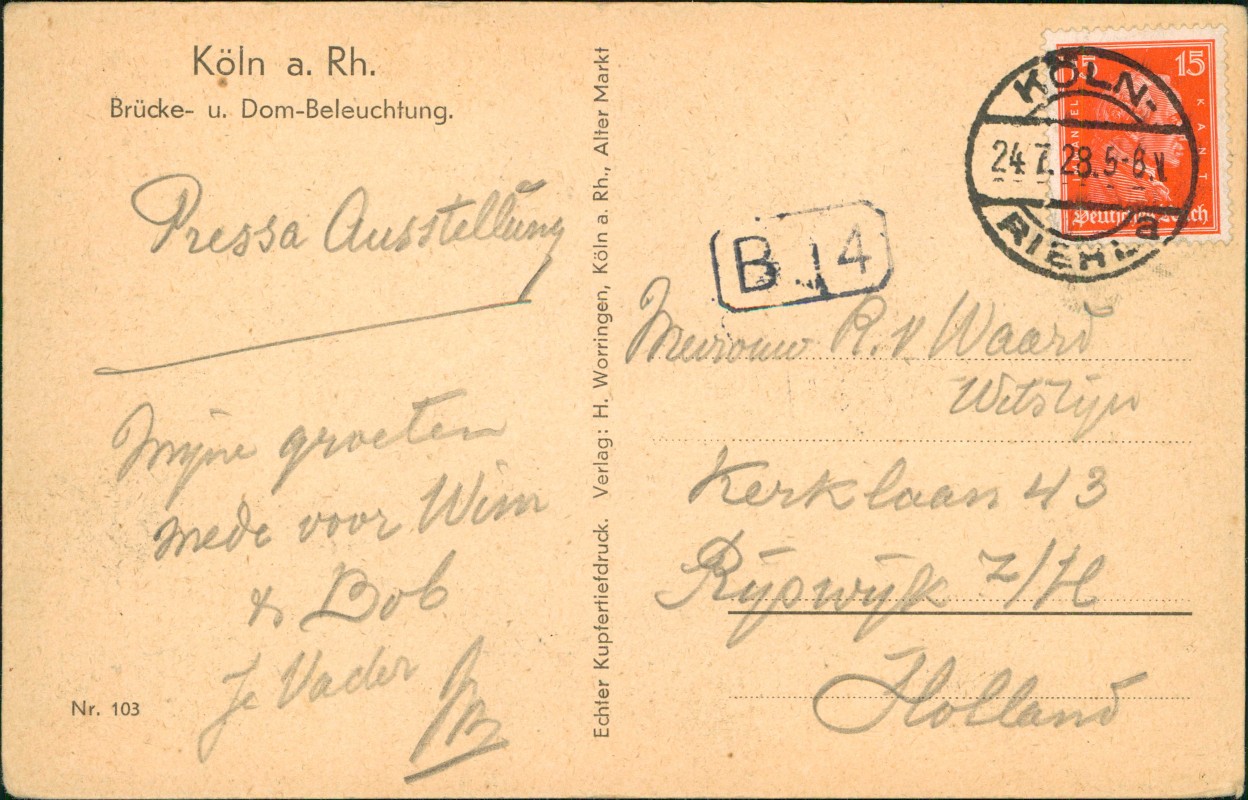 Köln a. Rh.
Brücke- u. Dom-Beleuchtung.
Pressa Ausstellung
Mijne groeten
mede voor Wim
& Bob
Je Vader
Nr. 103
Echter Kupfertiefdruck. Verlag: H. Worringen, Köln a. Rh., Alter Markt
15 15
KANT
Deutsches Reich
KÖLN-
24.7.28.5-6.V
RIEHL a
B 14
Mevrouw R. v Waard
Kerklaan 43
Rijswijk Z/H
Holland